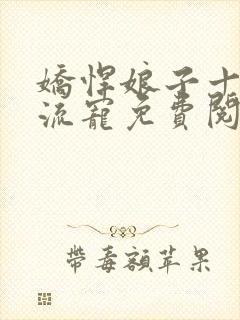 嬌悍娘子十
流寵免費閱
帶毒額苹果